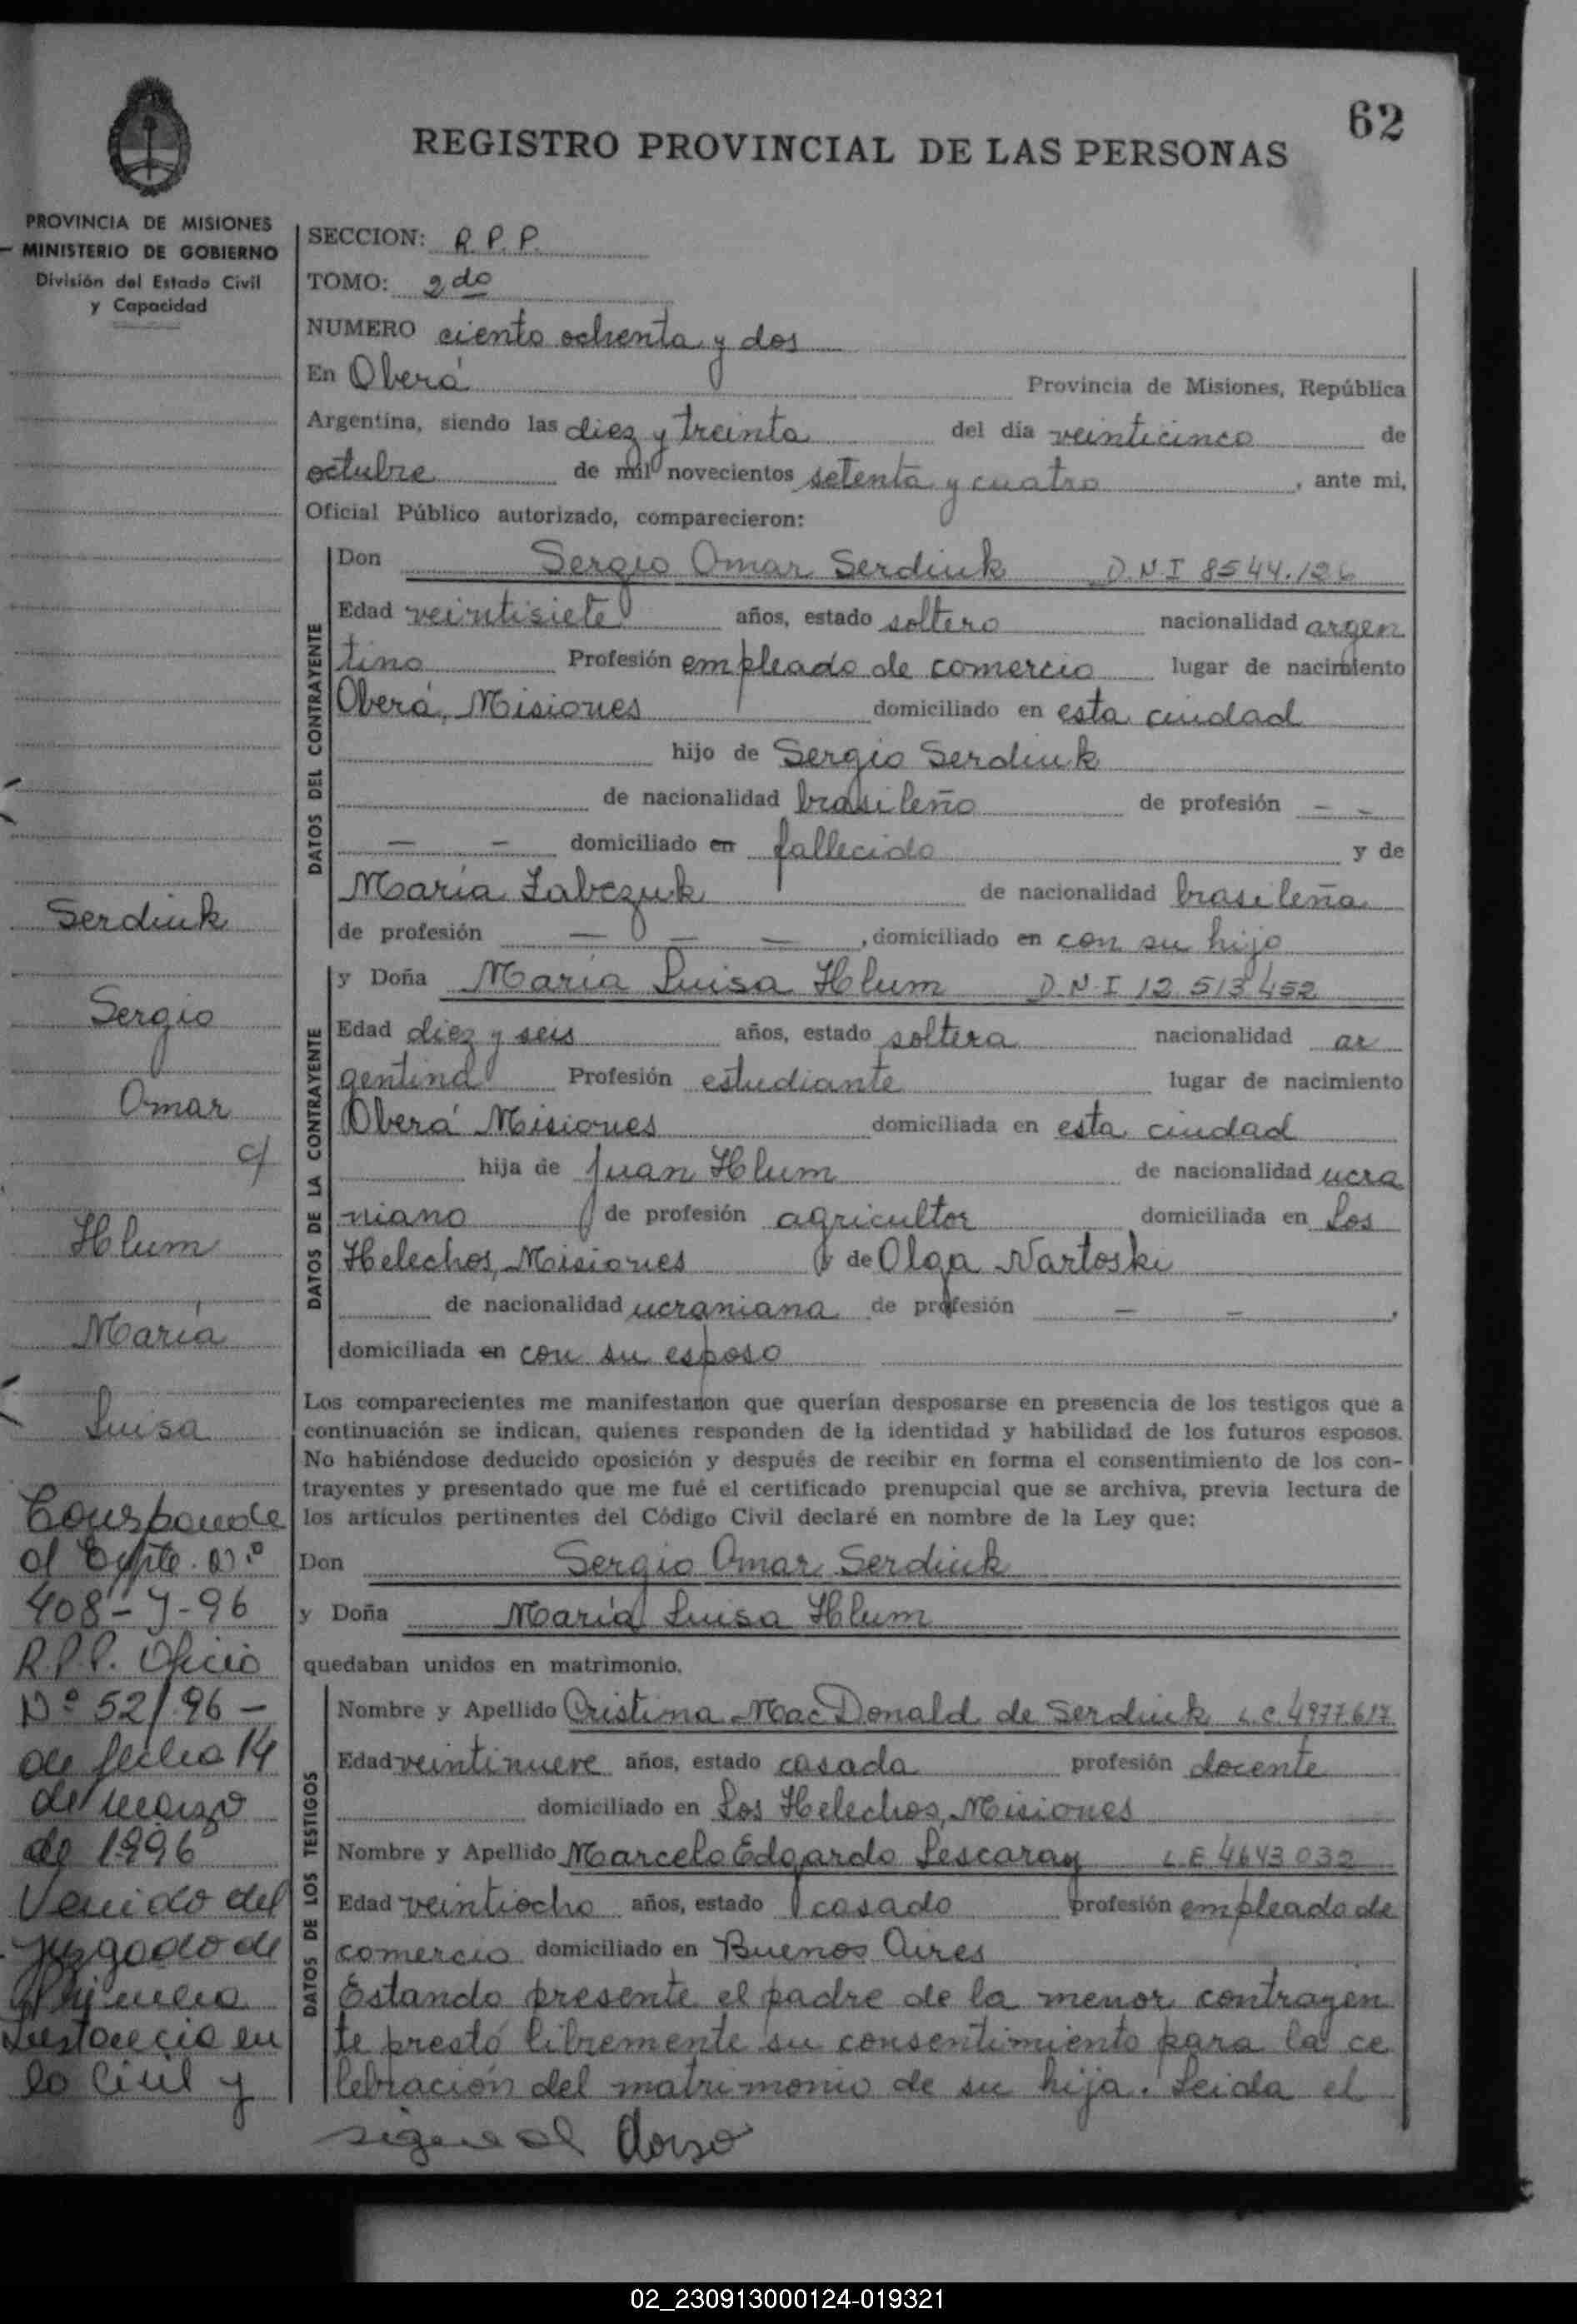 62
REGISTRO PROVINCIAL DE LAS PERSONAS
PROVINCIA DE MISIONES
MINISTERIO DE GOBIERNO
División del Estado Civil
y Capacidad
Serdiuk
Sergio
Omar
c/
Hlum
María
Luisa
Corresponde
al Expte. N.º
408-J-96
R.P.P. Oficio
Nº 52/96-
de fecha 14
de marzo
de 1996
Venido del
Juzgado de
Primera
Instancia en
lo Civil y
SECCION: R. P. P.
TOMO: 2do
NUMERO ciento ochenta y dos
En Oberá Provincia de Misiones, República
Argentina, siendo las diez y treinta del día veinticinco de
octubre de mil novecientos setenta y cuatro, ante mi,
Oficial Público autorizado, comparecieron:
DATOS DEL CONTRAYENTE
Don Sergio Omar Serdiuk D.N.I 8544.126
Edad veintisiete años, estado soltero nacionalidad argen
tino Profesión empleado de comercio lugar de nacimiento
Oberá, Misiones domiciliado en esta ciudad
hijo de Sergio Serdiuk
de nacionalidad brasileño de profesión - -
- - domiciliado en fallecido y de
María Zabczuk de nacionalidad brasileña
de profesión - - -, domiciliado en con su hijo
DATOS DE LA CONTRAYENTE
y Doña María Luisa Hlum D.N.I 12.513.452
Edad diez y seis años, estado soltera nacionalidad ar
gentina Profesión estudiante lugar de nacimiento
Oberá Misiones domiciliada en esta ciudad
hija de Juan Hlum de nacionalidad ucra
niano de profesión agricultor domiciliada en Los
Helechos, Misiones y de Olga Nartoski
de nacionalidad ucraniana de profesión - - ,
domiciliada en con su esposo
Los comparecientes me manifestaron que querían desposarse en presencia de los testigos que a
continuación se indican, quienes responden de la identidad y habilidad de los futuros esposos.
No habiéndose deducido oposición y después de recibir en forma el consentimiento de los con-
trayentes y presentado que me fué el certificado prenupcial que se archiva, previa lectura de
los artículos pertinentes del Código Civil declaré en nombre de la Ley que:
Don Sergio Omar Serdiuk
y Doña María Luisa Hlum
quedaban unidos en matrimonio.
DATOS DE LOS TESTIGOS
Nombre y Apellido Cristina MacDonald de Serdiuk L.C. 4977.617
Edad veintinueve años, estado casada profesión docente
domiciliado en Los Helechos, Misiones
Nombre y Apellido Marcelo Edgardo Lescaray L.E 4643.032
Edad veintiocho años, estado casado profesión empleado de
comercio domiciliado en Buenos Aires
Estando presente el padre de la menor contrayen
te prestó libremente su consentimiento para la ce
lebración del matrimonio de su hija. Leida el
sigue al dorso
02_230913000124-019321